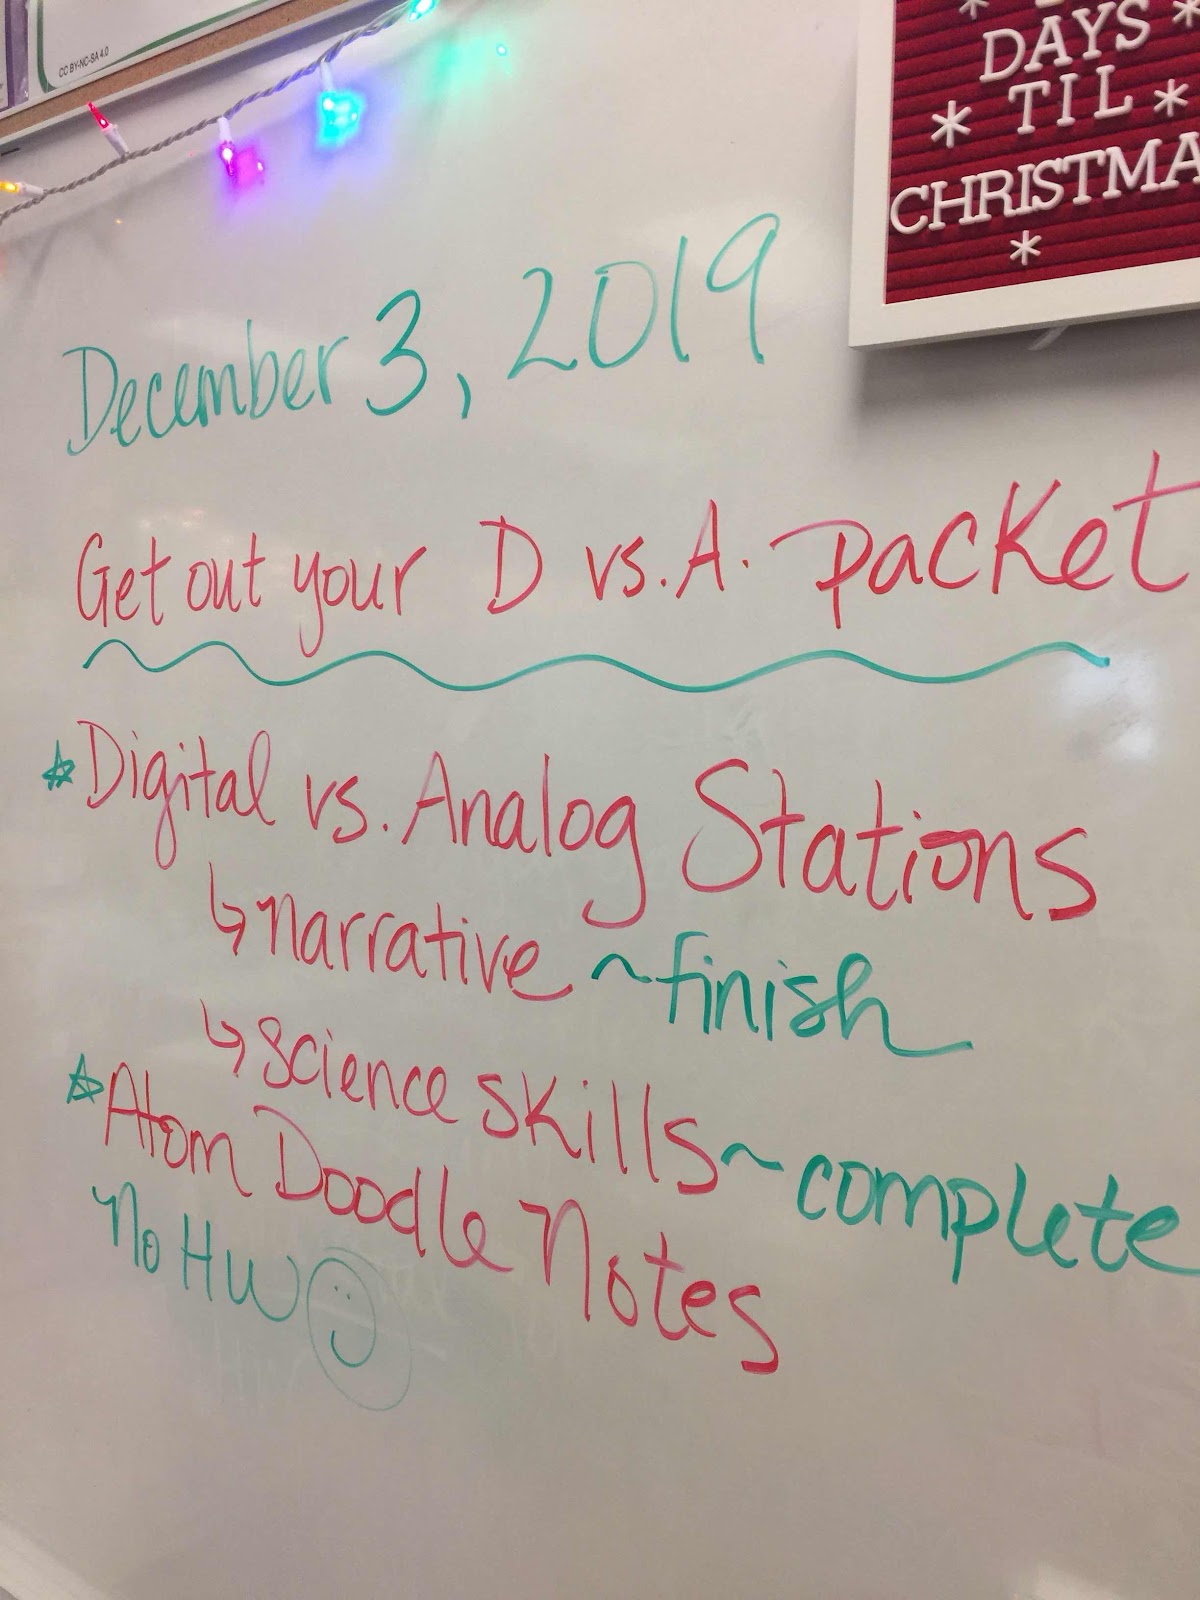 CC BY-NC-SA 4.0
DAYS
TIL
CHRISTMA
December 3, 2019
Get out your D vs. A. packet
Digital vs. Analog Stations
↳ narrative ~ finish
↳ science skills ~ complete
Atom Doodle Notes
No HW